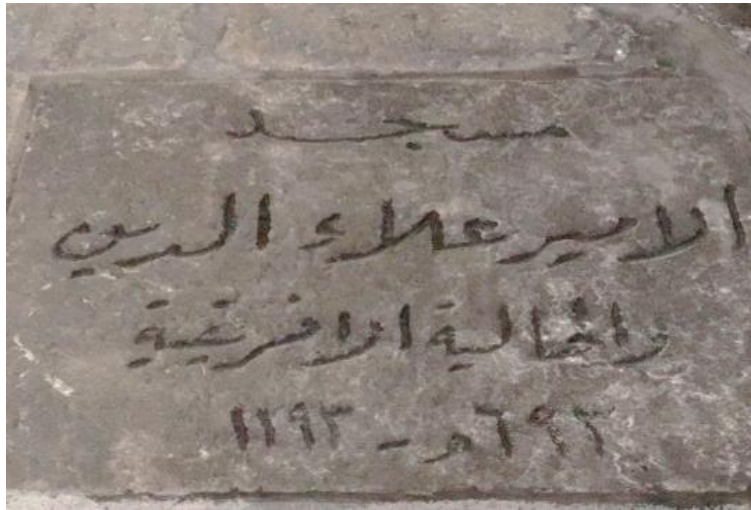 مسجد
الامير علاء الدين
والجالية الافريقية
٦٩٣هـ - ١٢٩٣